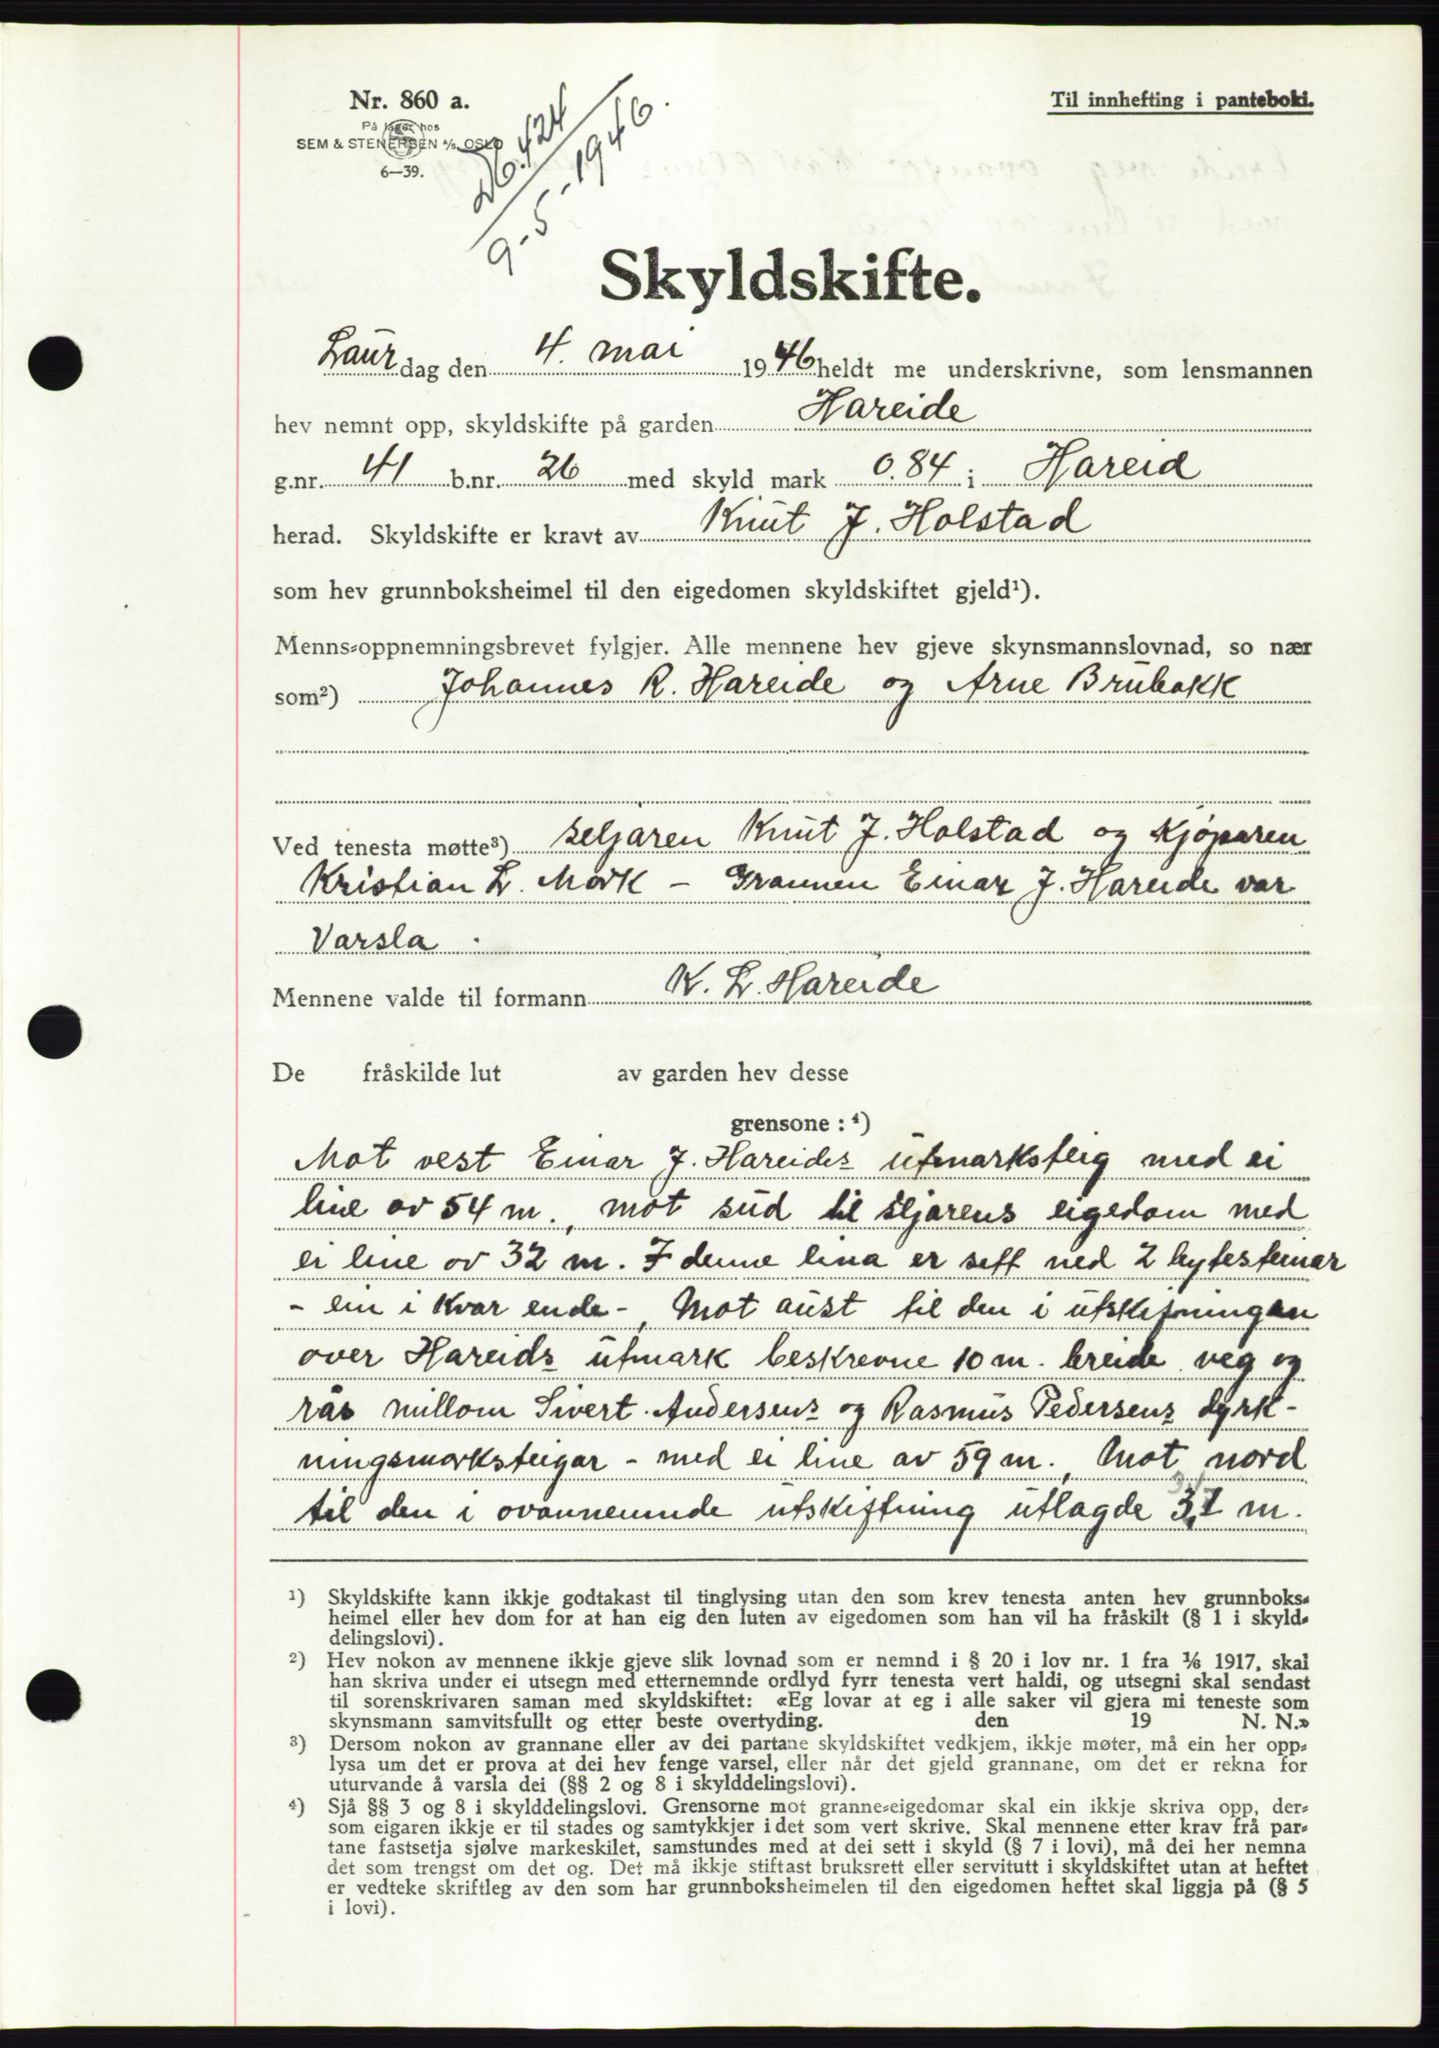 Nr. 860 a.
På lager hos
SEM & STENERSEN A/S OSLO
6—39.
Til innhefting i panteboki.
Db. 424
9-5-1946.
Skyldskifte.
Laur dag den 4. mai 1946 heldt me underskrivne, som lensmannen
hev nemnt opp, skyldskifte på garden Hareide
g.nr. 41 b.nr. 26 med skyld mark 0.84 i Hareid
herad. Skyldskifte er kravt av Knut J. Holstad
som hev grunnboksheimel til den eigedomen skyldskiftet gjeld¹).
Menns-oppnemningsbrevet fylgjer. Alle mennene hev gjeve skynsmannslovnad, so nær
som²) Johannes R. Hareide og Arne Brubakk
Ved tenesta møtte³) seljaren Knut J. Holstad og Kjøparen
Kristian L. Mork – Grannen Einar J. Hareide var
Varsla.
Mennene valde til formann K. L. Hareide
De fråskilde lut av garden hev desse
grensone : ⁴)
Mot vest Einar J. Hareides utmarksteig med ei
line av 54 m., mot sud til seljarens eigedom med
ei line av 32 m. I denne lina er sett ned 2 bytesteinar
- ein i kvar ende -, Mot aust til den i utskiftningen
over Hareids utmark beskrevne 10 m. breide veg og
rås millom Sivert Andersens og Rasmus Pedersens dyrk-
ningsmarksteigar - med ei line av 59 m., Mot nord
til den i ovannemnde utskiftning utlagde 3,1 m.
¹) Skyldskifte kann ikkje godtakast til tinglysing utan den som krev tenesta anten hev grunnboks-
heimel eller hev dom for at han eig den luten av eigedomen som han vil ha fråskilt (§ 1 i skyld-
delingslovi).
²) Hev nokon av mennene ikkje gjeve slik lovnad som er nemnd i § 20 i lov nr. 1 fra 1/6 1917, skal
han skriva under ei utsegn med etternemnde ordlyd fyrr tenesta vert haldi, og utsegni skal sendast
til sorenskrivaren saman med skyldskiftet: «Eg lovar at eg i alle saker vil gjera mi teneste som
skynsmann samvitsfullt og etter beste overtyding. den 19 N. N.»
³) Dersom nokon av grannane eller av dei partane skyldskiftet vedkjem, ikkje møter, må ein her opp-
lysa um det er prova at dei hev fenge varsel, eller når det gjeld grannane, om det er rekna for
uturvande å varsla dei (§§ 2 og 8 i skylddelingslovi).
⁴) Sjå §§ 3 og 8 i skylddelingslovi. Grensorne mot granne-eigedomar skal ein ikkje skriva opp, der-
som eigaren ikkje er til stades og samtykkjer i det som vert skrive. Skal mennene etter krav frå par-
tane fastsetja sjølve markeskilet, samstundes med at dei sett i skyld (§ 7 i lovi), må dei her nemna
det som trengst om det og. Det må ikkje stiftast bruksrett eller servitutt i skyldskiftet utan at heftet
er vedteke skriftleg av den som har grunnboksheimelen til den eigedomen heftet skal liggja på (§ 5
i lovi).